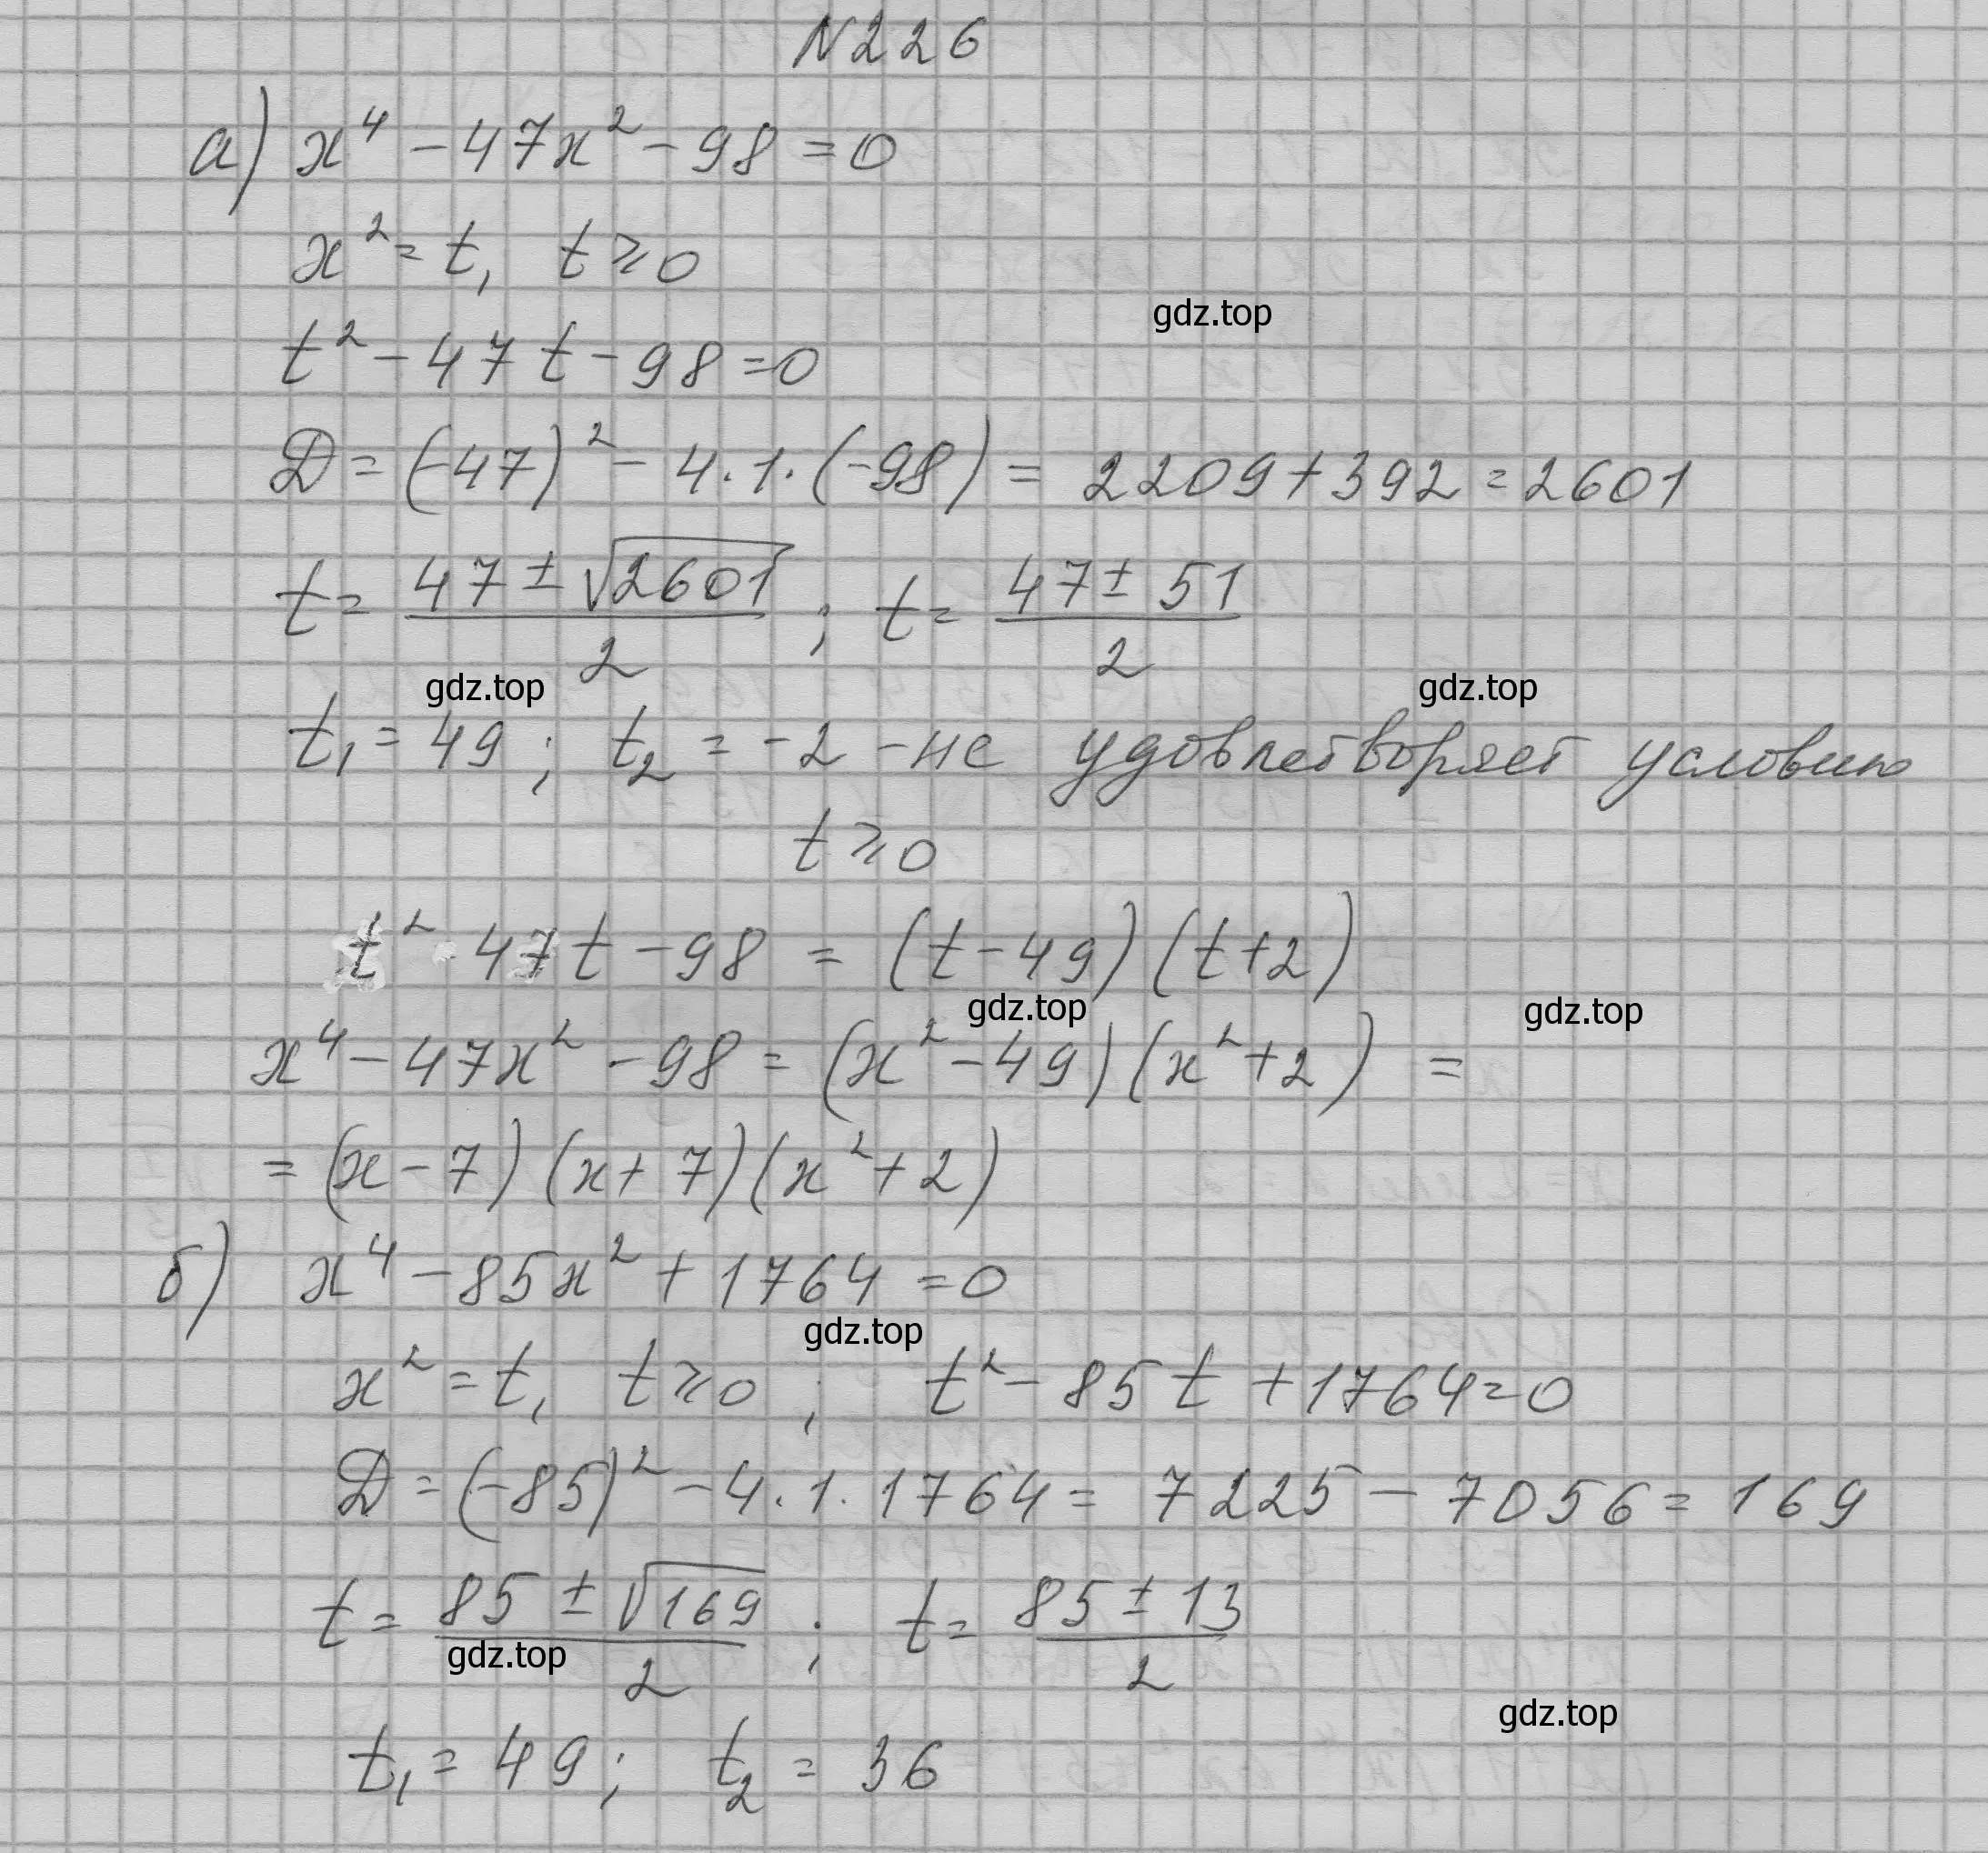 N226
а) x⁴ - 47x² - 98 = 0
x² = t, t ⩾ 0
gdz.top
t² - 47t - 98 = 0
D = (-47)² - 4·1·(-98) = 2209 + 392 = 2601
t = (47 ± √2601)/2 ; t = (47 ± 51)/2
gdz.top gdz.top
t₁ = 49 ; t₂ = -2 - не удовлетворяет условию
t ⩾ 0
t² - 47t - 98 = (t - 49)(t + 2)
gdz.top gdz.top
x⁴ - 47x² - 98 = (x² - 49)(x² + 2) =
= (x - 7)(x + 7)(x² + 2)
б) x⁴ - 85x² + 1764 = 0
gdz.top
x² = t, t ⩾ 0 ; t² - 85t + 1764 = 0
D = (-85)² - 4·1·1764 = 7225 - 7056 = 169
t = (85 ± √169)/2 ; t = (85 ± 13)/2
gdz.top
gdz.top
t₁ = 49 ; t₂ = 36